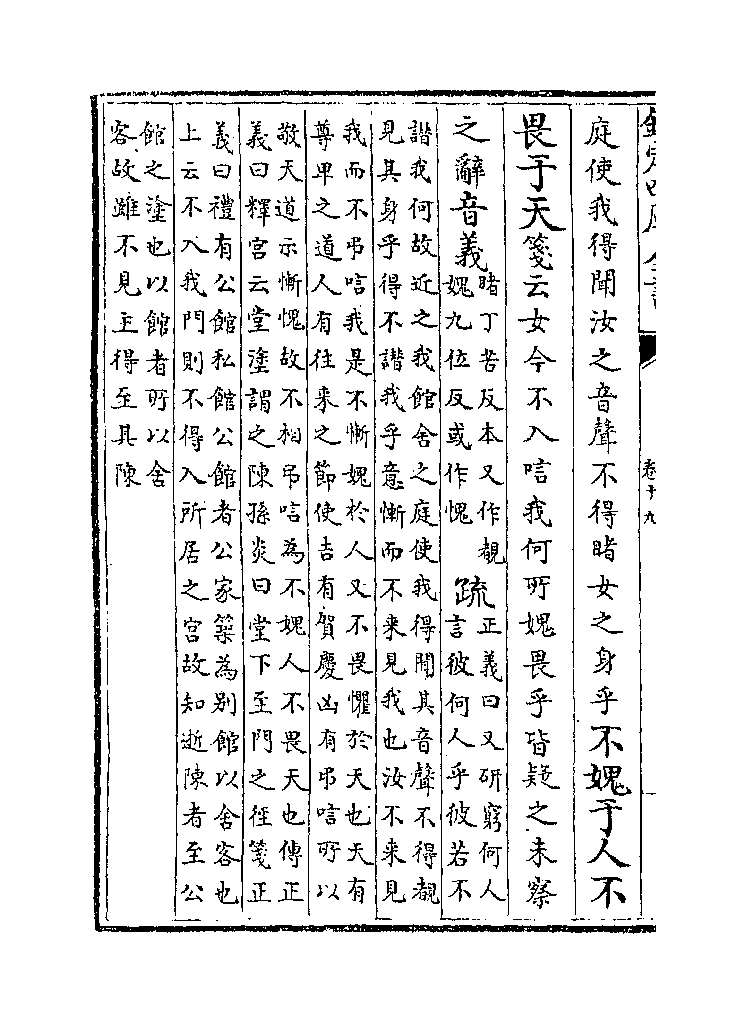 欽定四庫全書
卷十九
庭使我得聞汝之音聲不得睹女之身乎不媿于人不
畏于天箋云女今不入唁我何所媿畏乎皆疑之未察
之辭音義
睹丁苦反本又作覩
媿九位反或作愧
疏
正義曰又硏窮何人
言彼何人乎彼若不
諧我何故近之我館舍之庭使我得聞其音聲不得覩
見其身乎得不諧我乎意慚而不来見我也汝不来見
我而不弔唁我是不慚媿於人又不畏懼於天也天有
尊卑之道人有往来之節使吉有賀慶凶有弔唁所以
敬天道示慚愧故不相弔唁為不媿人不畏天也傳正
義曰釋宫云堂塗謂之陳孫炎曰堂下至門之徑箋正
義曰禮有公館私館公館者公家築為别館以舍客也
上云不入我門則不得入所居之宫故知逝陳者至公
館之塗也以館者所以舍
客故雖不見主得至其陳